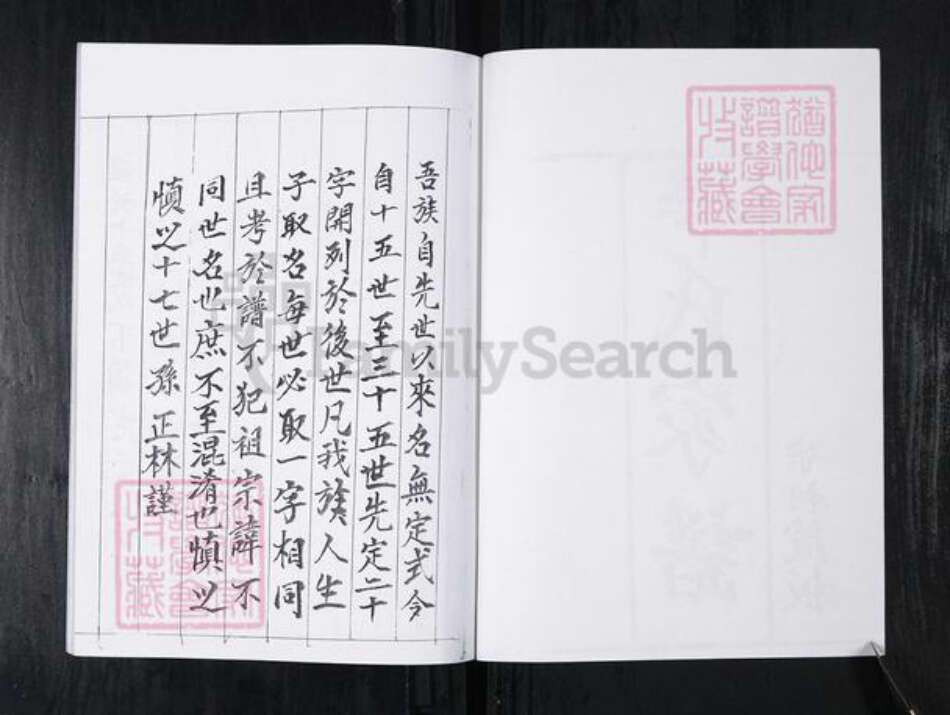 吾族自先世以來名無定式今
自十五世至三十五世先定二十
字開列於後世凡我族人生
子取名每世必取一字相同
且考於譜不犯祖宗諱不
同世名也庶不至混淆也慎之
慎之十七世孫正林謹
猶他家
譜學會
收藏
FamilySearch